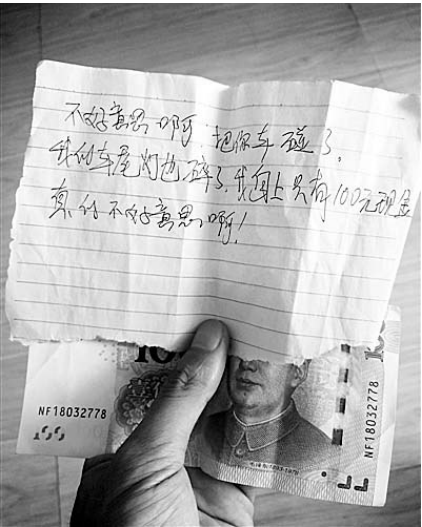 不好意思啊，把你车碰了，
我的车尾灯也碎了，我身上只有100元现金
真的不好意思啊！
100
NF18032778
NF18032778